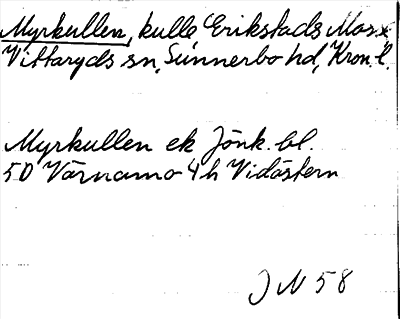 Myrkullen, kulle, Erikstads Mosse
Vittaryds sn, Sunnerbo hd, Kron. l.
Myrkullen ek Jönk. bl.
5D Värnamo 4h Vidöstern
J N 58